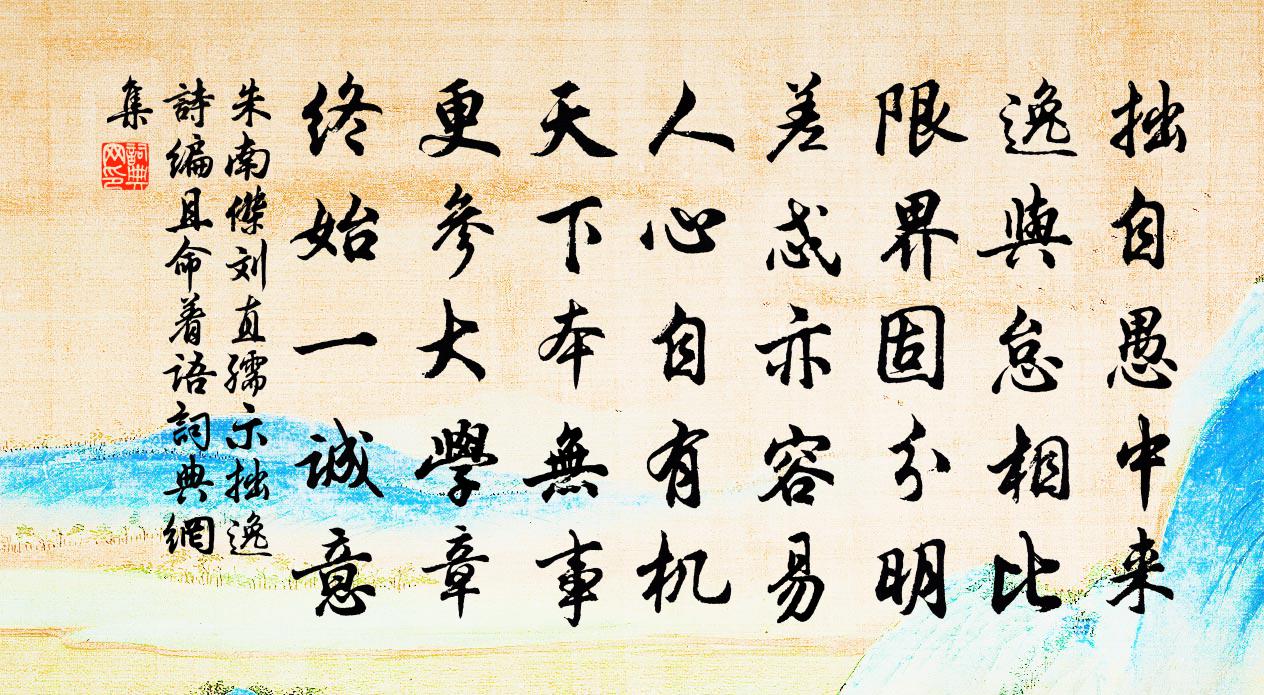 拙自愚中来
逸與怠相比
限界固分明
差忒亦容易
人心自有机
天下本無事
更參大學章
終始一誠意
朱南傑刘直孺示拙逸
詩编且命着语詞典網
集
詞典
网印